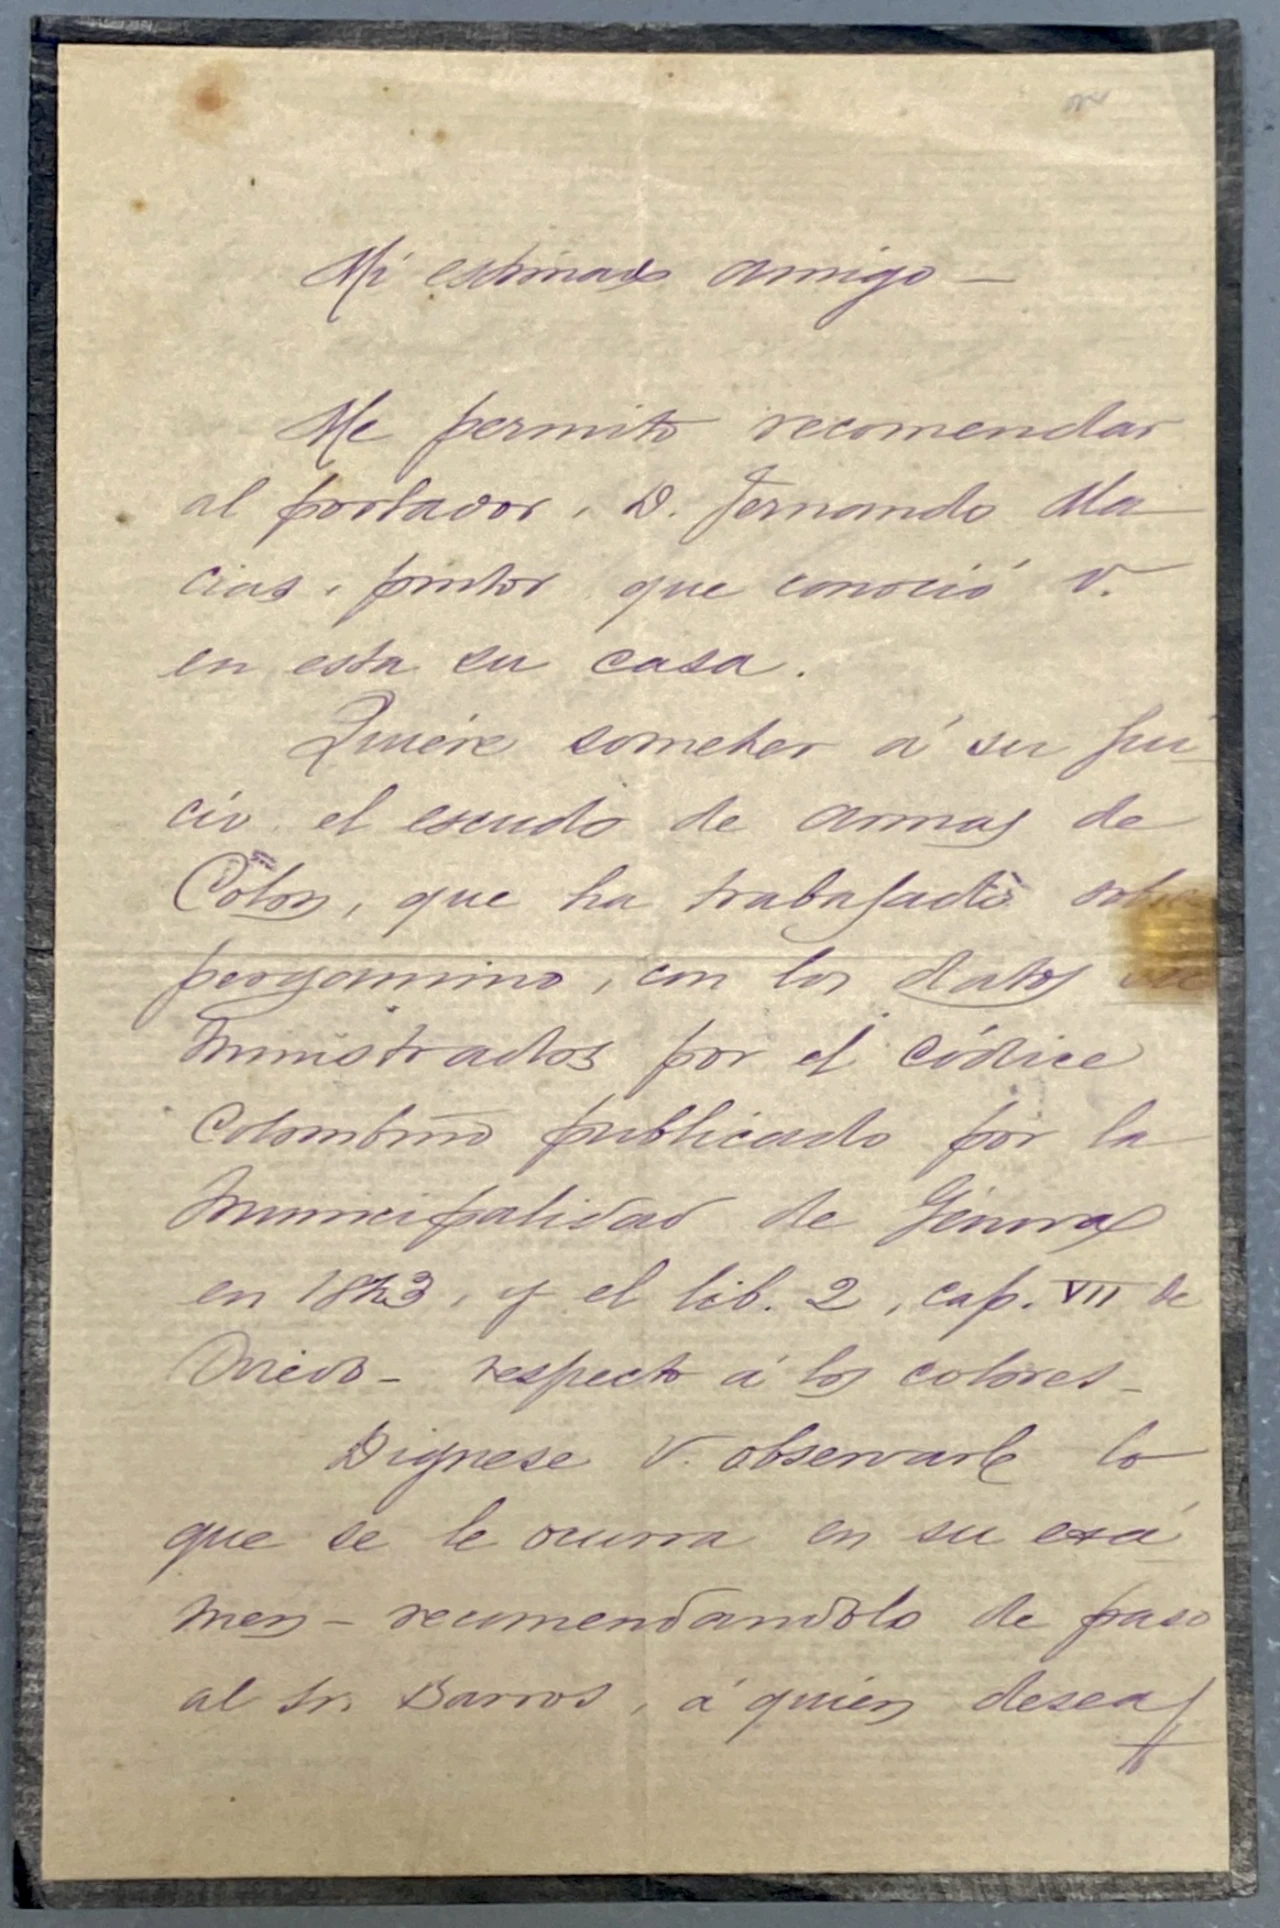 Mi estimado amigo —
Me permito recomendar
al portador, D. Fernando Ma
cias, pintor que conoció V.
en esta su casa.
Quiére someter á su jui
cio el escudo de armas de
Colon, que ha trabajado sobre
pergamino, con los datos su
ministrados por el códice
Colombino publicado por la
Municipalidad de Génova
en 1823, y el lib. 2, cap. VII de
Oviedo — respecto á los colores —
Dignese V. observarle lo
que se le ocurra en su exá
men — recomendandolo de paso
al Sr. Barros, á quien desea